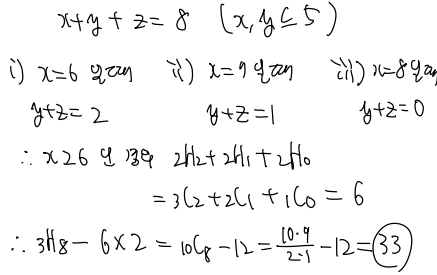 x+y+z=8 (x,y≤5)
i) x=6 일때 ii) x=7 일때 iii) x=8일때
y+z=2 y+z=1 y+z=0
∴ x≥6 인 경우 ₂H₂+₂H₁+₂H₀
= ₃C₂+₂C₁+₁C₀ = 6
∴ ₃H₈ - 6×2 = ₁₀C₈ -12 = \frac{10·9}{2·1} -12 = 33